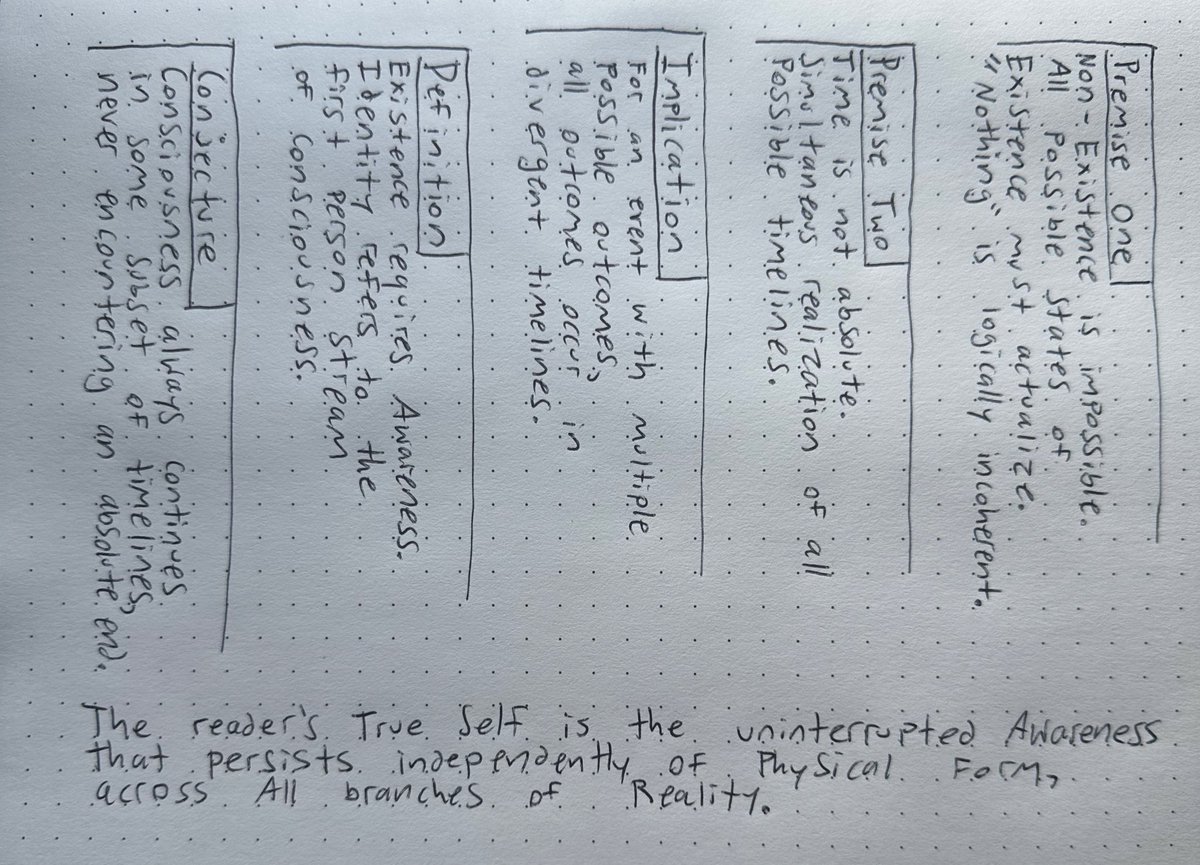 Premise One
Non-Existence is impossible.
All Possible states of
Existence must actualize.
"Nothing" is logically incoherent.
Premise Two
Time is not absolute.
Simultaneous realization of all
Possible timelines.
Implication
For an event with multiple
possible outcomes,
all outcomes occur in
divergent timelines.
Definition
Existence requires Awareness.
Identity refers to the
first person stream
of consciousness.
Conjecture
Consciousness always continues
in some subset of timelines,
never encountering an absolute end.
The reader's True Self is the uninterrupted Awareness
that persists independently of Physical Form,
across All branches of Reality.